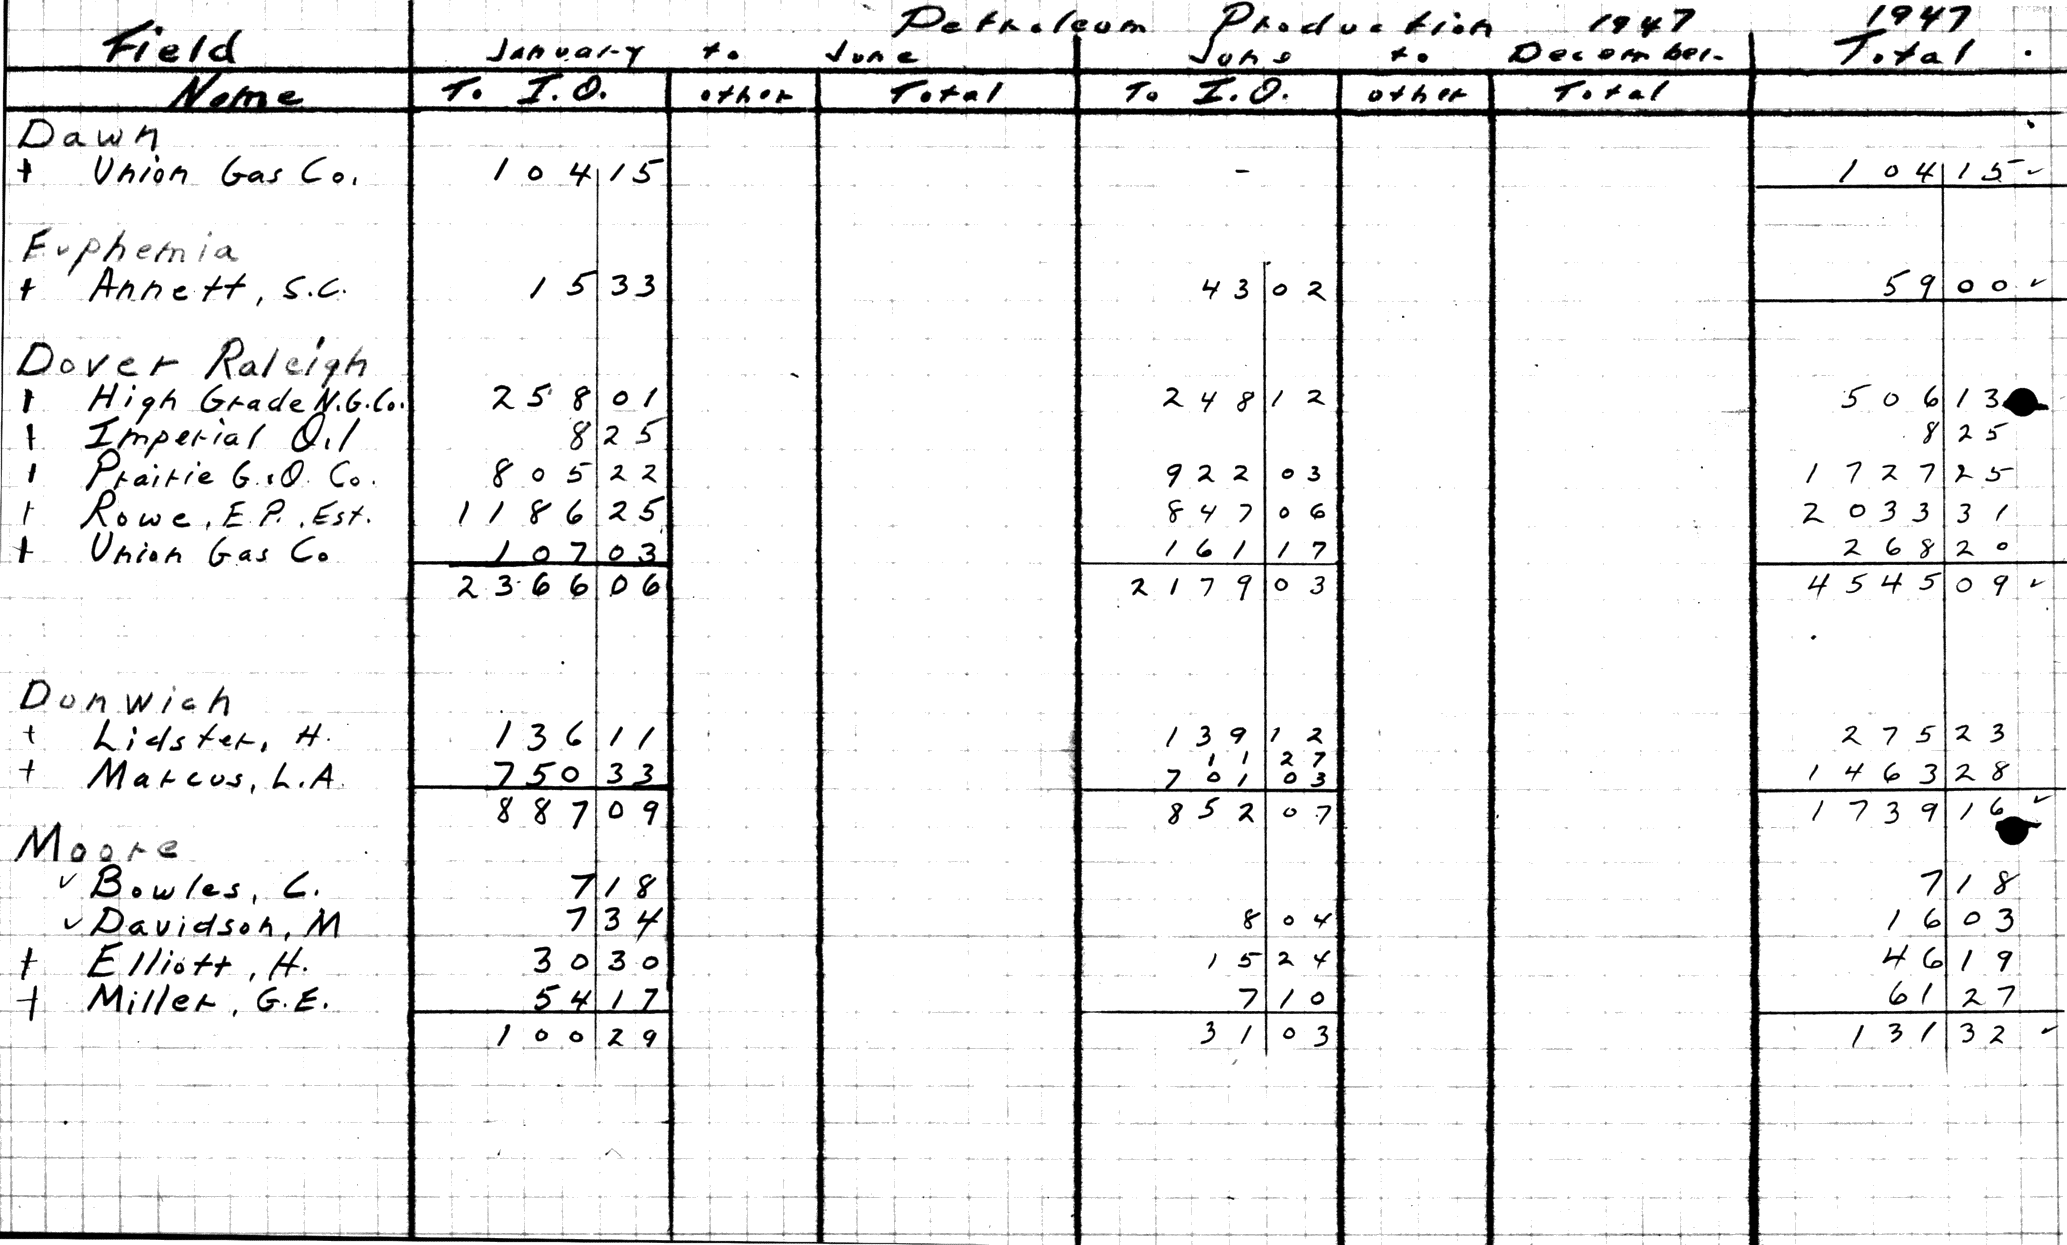 Petroleum Production 1947 1947
Field January to June June to December. Total
Name To I.O. other Total To I.O. other Total
Dawn
+ Union Gas Co. 104|15 - 104|15 ✓
Euphemia
+ Annett, S.C. 15|33 43|02 59|00 ✓
Dover Raleigh
+ High Grade N.G.Co. 258|01 248|12 506|13
+ Imperial Oil 8|25 8|25
+ Prairie G.&O. Co. 805|22 922|03 1727|25
+ Rowe, E.P., Est. 1186|25 847|06 2033|31
+ Union Gas Co 107|03 161|17 268|20
2366|06 2179|03 4545|09 ✓
Dunwich
+ Lidster, H. 136|11 139|12 275|23
11|27
+ Marcus, L.A. 750|33 701|03 1463|28
887|09 852|07 1739|16 ✓
Moore
✓ Bowles, C. 7|18 7|18
✓ Davidson, M 7|34 8|04 16|03
+ Elliott, H. 30|30 15|24 46|19
+ Miller, G.E. 54|17 7|10 61|27
100|29 31|03 131|32 ✓